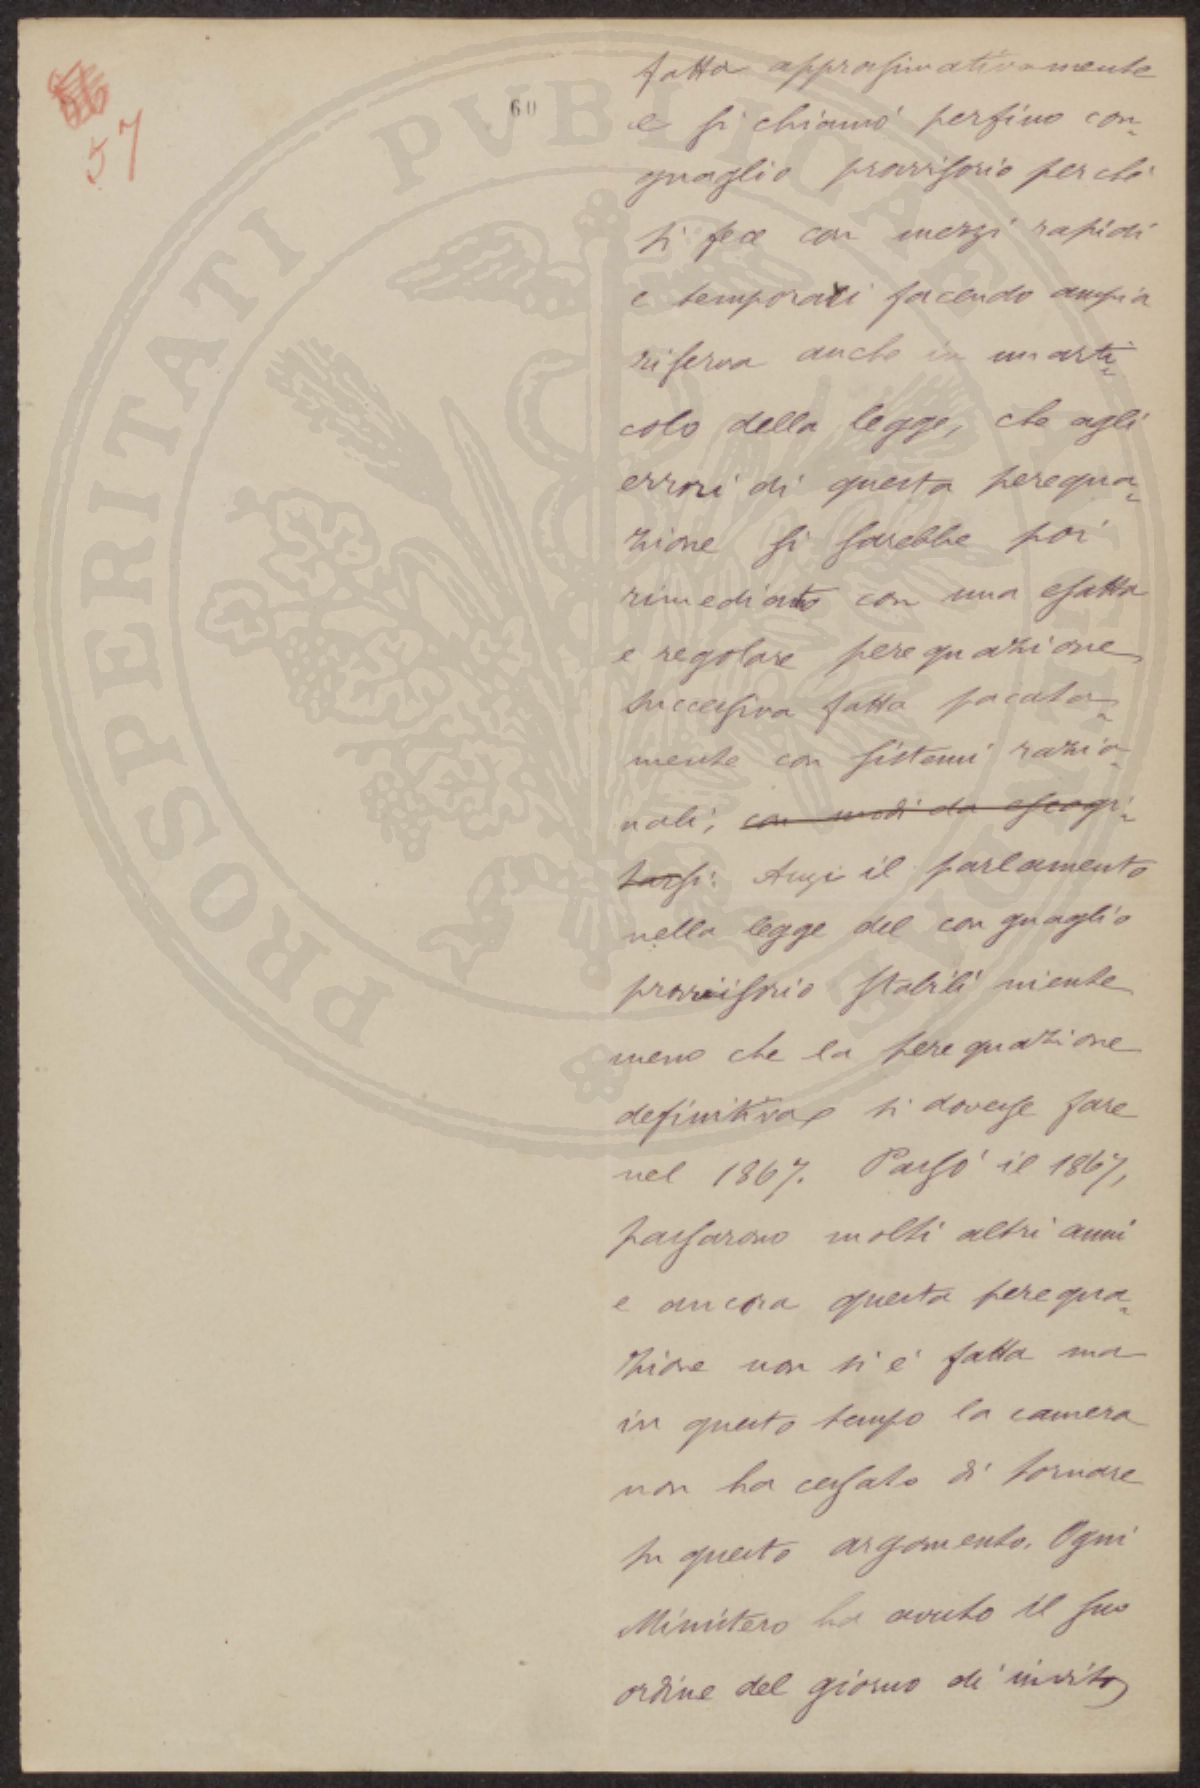 57
60
fatta approssimativamente
e si chiamò perfino con=
guaglio provvisorio perchè
si fece con mezzi rapidi
e temporari facendo ampia
riserva anche in un arti=
colo della legge, che agli
errori di questa perequa=
zione si sarebbe poi
rimediato con una esatta
e regolare perequazione
successiva fatta pacata=
mente con sistemi razio=
nali, con modi da escogi=
tarsi. Anzi il parlamento
nella legge del conguaglio
provvisorio stabilì niente
meno che la perequazione
definitiva si dovesse fare
nel 1867. Passò il 1867,
passarono molti altri anni
e ancora questa perequa=
zione non si è fatta ma
in questo tempo la camera
non ha cessato di tornare
su questo argomento. Ogni
Ministero ha avuto il suo
ordine del giorno di invito
PROSPERITATI PVBLICAE